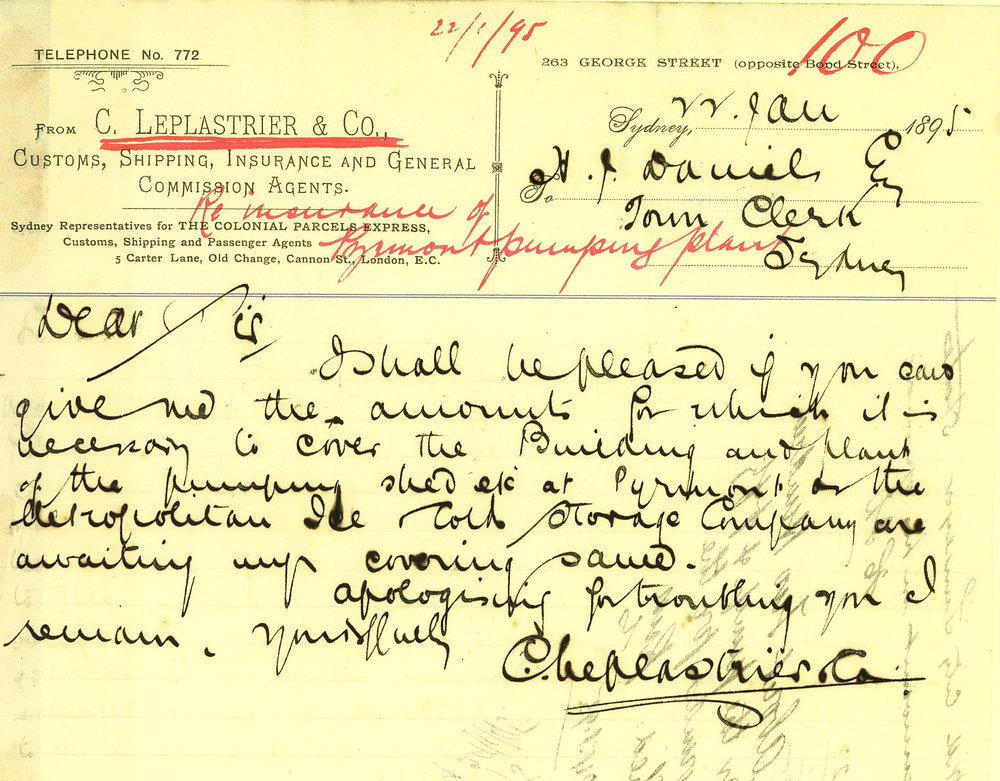 22/1/95
100
TELEPHONE No. 772
263 GEORGE STREET (opposite Bond Street).
FROM C. LEPLASTRIER & CO.,
CUSTOMS, SHIPPING, INSURANCE AND GENERAL
COMMISSION AGENTS.
Sydney Representatives for THE COLONIAL PARCELS EXPRESS,
Customs, Shipping and Passenger Agents
5 Carter Lane, Old Change, Cannon St., London, E.C.
Re insurance of
Pyrmont pumping plant
Sydney, 22 Jan 1895
To H. J. Daniel Esq
Town Clerk
Sydney
Dear Sir
I shall be pleased if you can
give me the amounts for which it is
necessary to cover the Building and plant
of the pumping shed etc at Pyrmont as the
Metropolitan Ice & Cold Storage Company are
awaiting my covering same.
apologising for troubling you I
remain, Yours ffully
C. Leplastrier & Co.